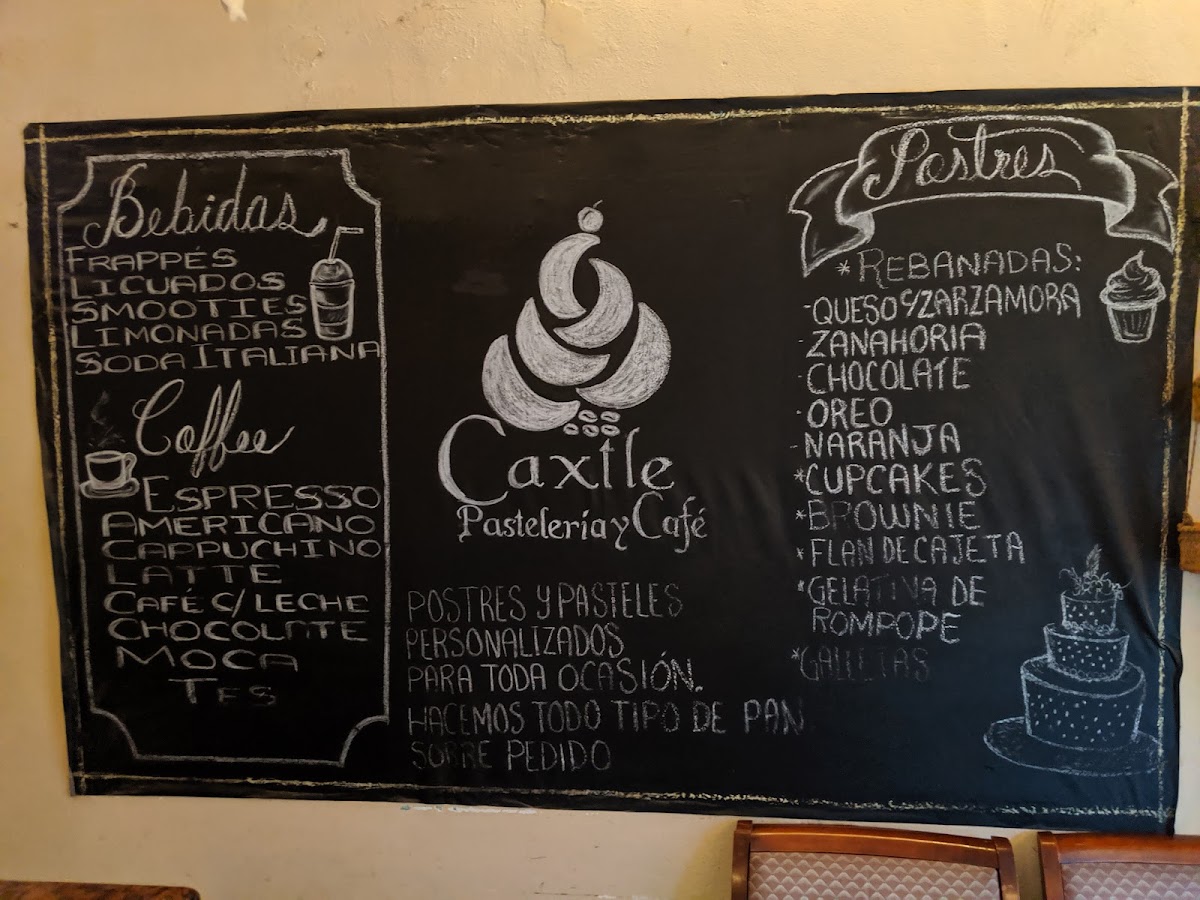 Bebidas
FRAPPÉS
LICUADOS
SMOOTIES
LIMONADAS
SODA ITALIANA
Coffee
ESPRESSO
AMERICANO
CAPPUCHINO
LATTE
CAFÉ C/ LECHE
CHOCOLATE
MOCA
TES
Caxtle
Pastelería y Café
POSTRES Y PASTELES
PERSONALIZADOS
PARA TODA OCASIÓN.
HACEMOS TODO TIPO DE PAN
SOBRE PEDIDO
Postres
* REBANADAS:
- QUESO C/ZARZAMORA
- ZANAHORIA
- CHOCOLATE
- OREO
- NARANJA
* CUPCAKES
* BROWNIE
* FLAN DE CAJETA
* GELATINA DE
ROMPOPE
* GALLETAS